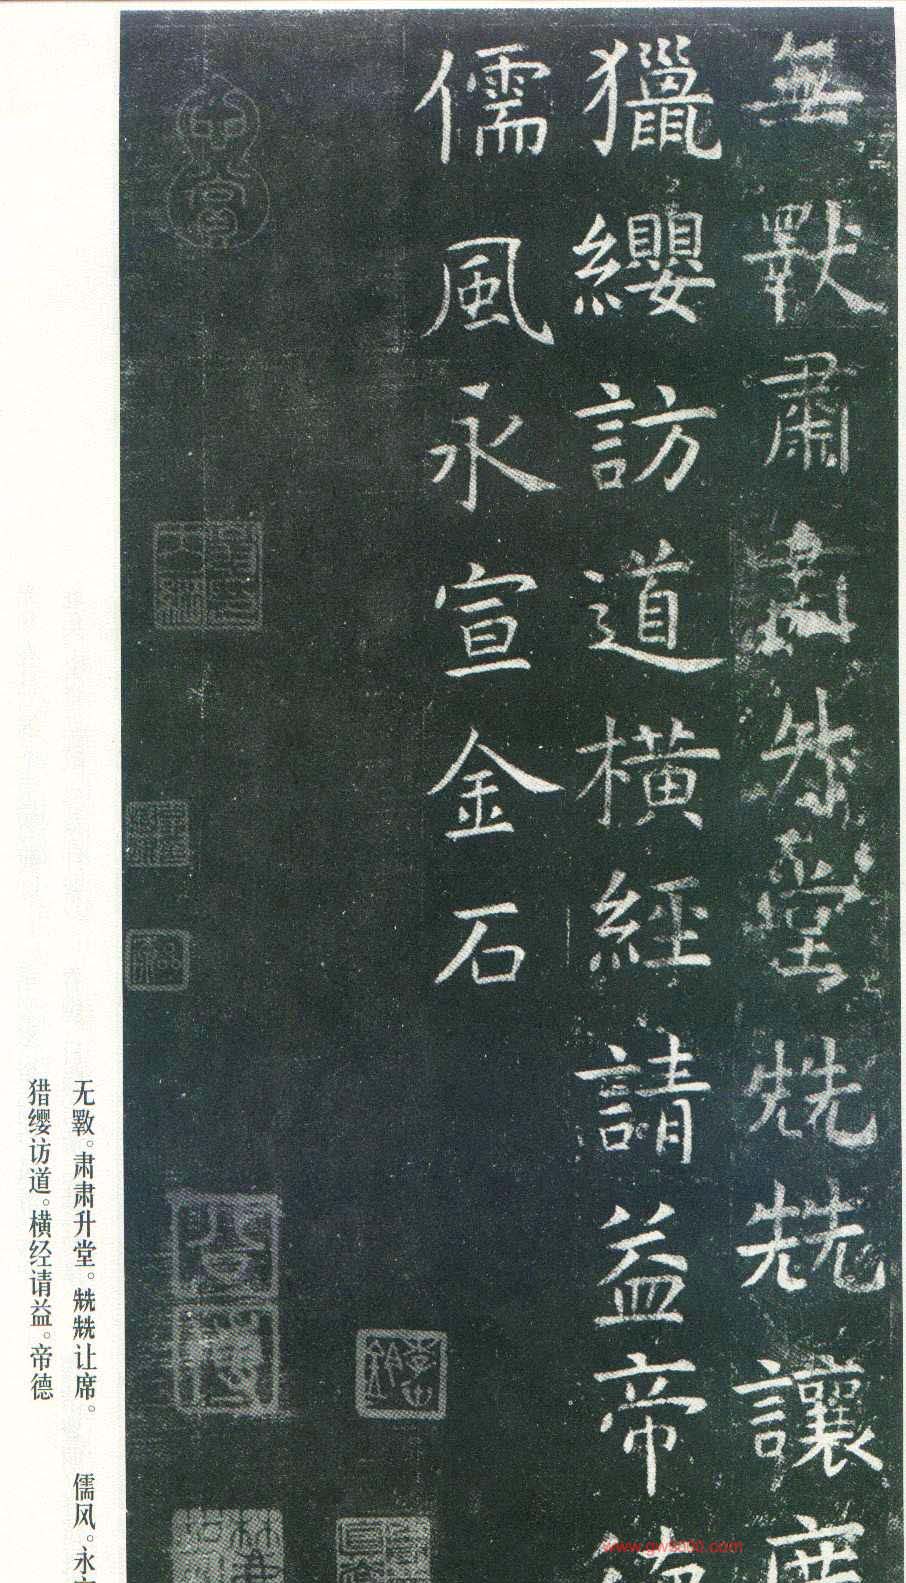 無斁肅肅升堂兟兟讓席
獵纓訪道橫經請益帝德
儒風永宣金石
无斁。肃肃升堂。兟兟让席。
猎缨访道。横经请益。帝德
儒风。永宣
www.gw8000.com